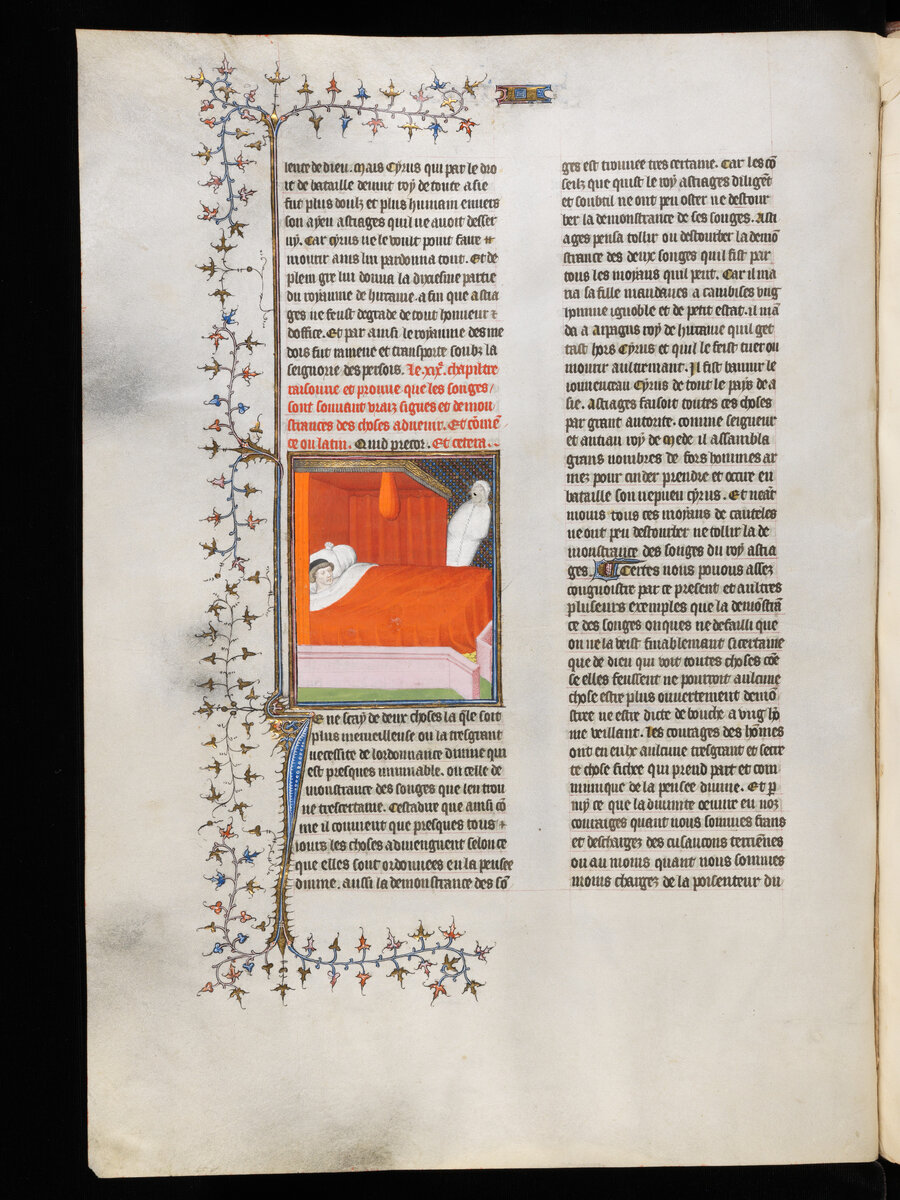 lence de dieu. Mais Cyrus qui par le dro
it de bataille devint roy de toute asie
fut plus doulz et plus humain envers
son ayeu astiages quil ne avoit desser
vy. Car cyrus ne le voult point faire
mourir ains lui pardonna tout. Et de
plein gre lui donna la dixiesme partie
du royaume de hircanie. a fin que astia
ges ne feust degrade de tout honneur
doffice. Et par ainsi le royaume des me
dois fut ramene et transporte soubz la
seignorie des persois. Le xixe. chapitre
raisonne et prouve que les songes
sont souvant vraiz signes et demon
strances des choses advenir. Et cōmē
ce ou latin. Quid precor. Et cetera.
Je ne scay de deux choses la q̄le soit
plus merveilleuse ou la tresgrant
necessite de lordonnance divine qui
est presques immuable. ou celle de
monstrance des songes que len trou
ve trescertaine. Cestadire que ainsi cō
me il convient que presques tous
iours les choses adviengnent selon ce
que elles sont ordonnees en la pensee
divine. aussi la demonstrance des sō
ges est trouvee tres certaine. Car les cō
seilz que quist le roy astiages diligēt
et soubtil ne ont peu oster ne destour
ber la demonstrance de ses songes. Asti
ages pensa tollir ou destourber la demō
strance des deux songes quil fist par
tous les moyans quil peut. Car il ma
ria sa fille mandanes a cambises ung
homme ignoble et de petit estat. il mā
da a arpagus roy de hircanie quil get
tast hors Cyrus et quil le feist tuer ou
mourir aultremant. Il fist bannir le
iouvenceau Cyrus de tout le pays de a
sie. Astiages faisoit toutes ces choses
par grant autorite. comme seigneur
et antian roy de Mede il assambla
grans nombres de fors hommes ar
mez pour cuider prendre et occire en
bataille son nepueu cyrus. Et neāt
moins tous ces moyans de cauteles
ne ont peu destourber ne tollir la de
monstrance des songes du roy astia
ges. Certes nous povons assez
congnoistre par ce present et aultres
pluseurs exemples que la demōstrā
ce des songes onques ne failli que
on ne la veist finablemant si certaine
que de dieu qui voit toutes choses cōe
se elles feussent ne pourroit aulcune
chose estre plus ouvertement demō
stree ne estre dicte de bouche a ung hō
me veillant. Les courages des hōmes
ont en eulx aulcune tresgrant et secre
te chose fichee qui prend part et com
munique de la pensee divine. Et p
my ce que la divinite oeuvre en noz
couraiges quant nous sommes frans
et deschargez des cusancons terriēnes
ou au moins quant nous sommes
moins chargez de la porsenteur du